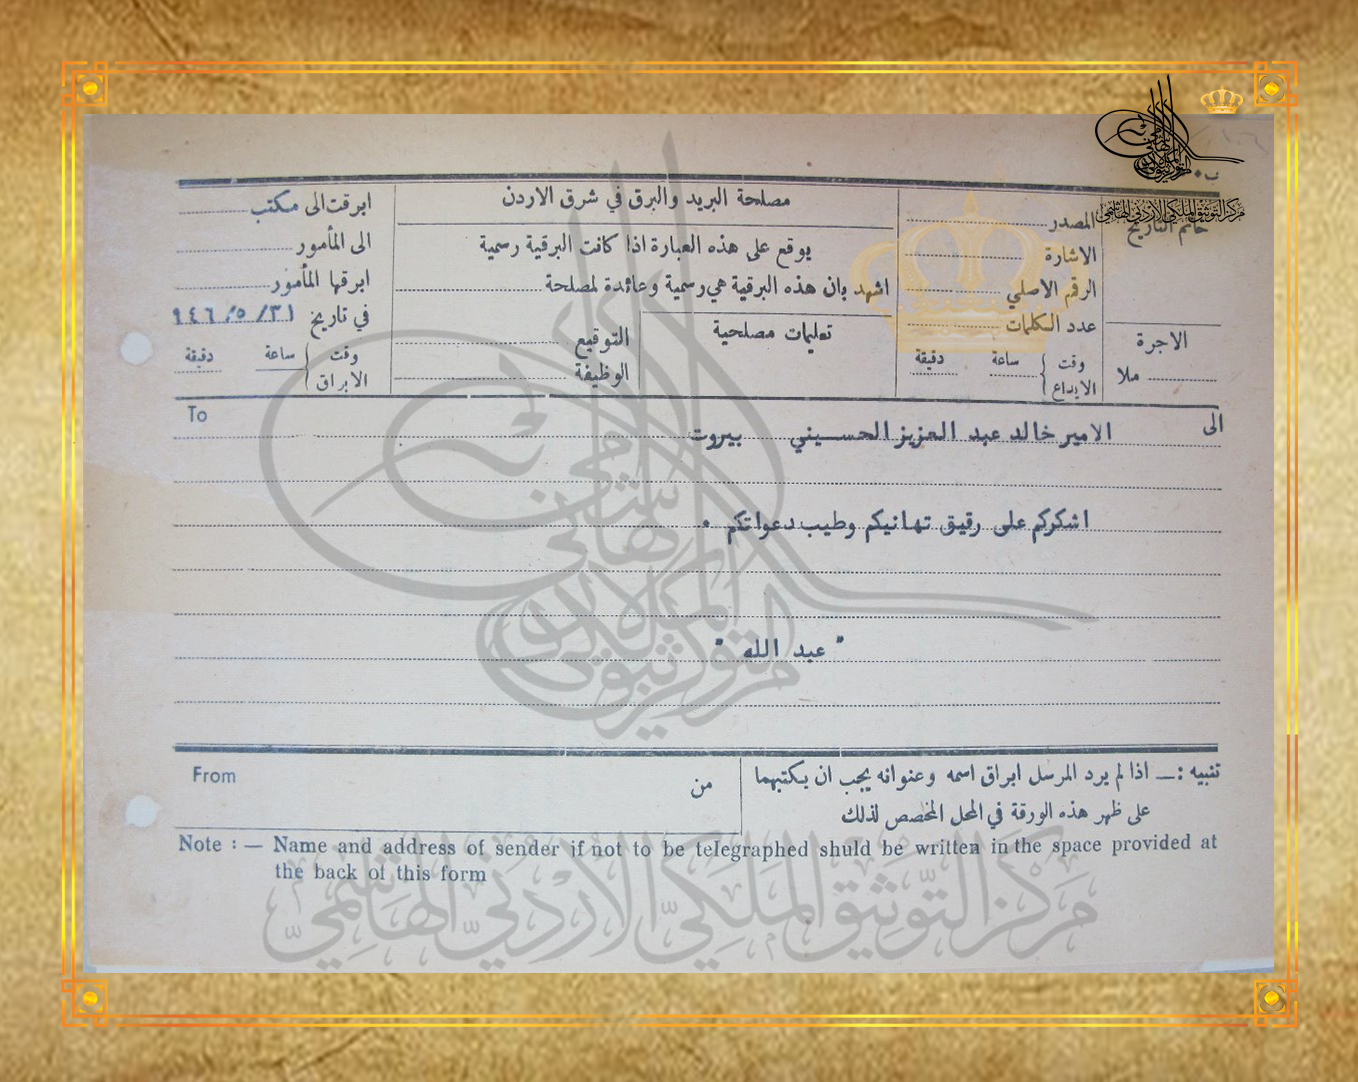 مركز التوثيق الملكي الاردني الهاشمي
خاتم التاريخ
الاجرة
ملا
المصدر
الاشارة
الرقم الاصلي
عدد الكلمات
وقت الايداع
ساعة
دقيقة
مصلحة البريد والبرق في شرق الاردن
يوقع على هذه العبارة اذا كانت البرقية رسمية
اشهد بان هذه البرقية هي رسمية وعائدة لمصلحة
تعليمات مصلحية
التوقيع
الوظيفة
ابرقت الى مكتب
الى المأمور
ابرقها المأمور
في تاريخ ٩٤٦/٥/٣١
وقت الابراق
ساعة
دقيقة
الى
To
الامير خالد عبد العزيز الحسيني بيروت
اشكركم على رقيق تهانيكم وطيب دعواتكم .
" عبد الله "
تنبيه :— اذا لم يرد المرسل ابراق اسمه وعنوانه يجب ان يكتبهما
على ظهر هذه الورقة في المحل المخصص لذلك
من
From
Note : — Name and address of sender if not to be telegraphed shuld be written in the space provided at
the back of this form
مركز التوثيق الملكي الأردني الهاشمي